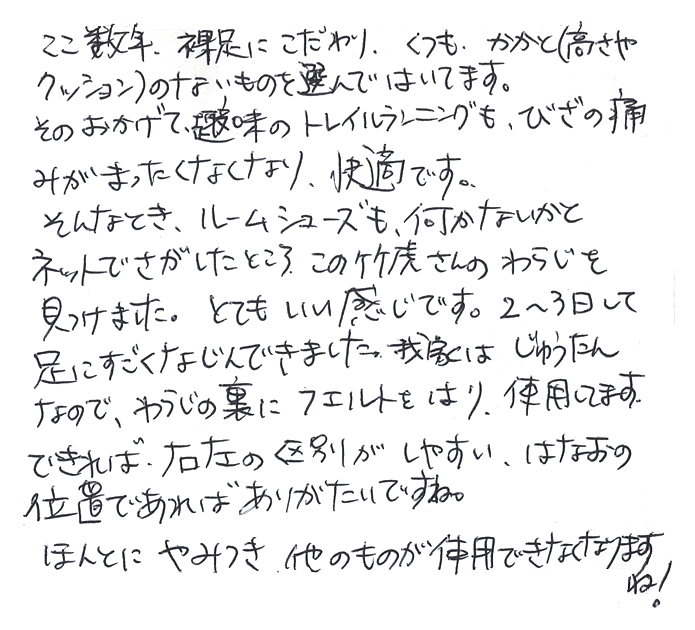 ここ数年、裸足にこだわり、くつも、かかと(高さや
クッション)のないものを選んではいてます。
そのおかげで、趣味のトレイルランニングも、ひざの痛
みがまったくなくなり、快適です。
そんなとき、ルームシューズも、何かないかと
ネットでさがしたところ、この竹虎さんのわらじを
見つけました。とてもいい感じです。2〜3日して
足にすごくなじんできました。我家はじゅうたん
なので、わらじの裏にフエルトをはり、使用してます。
できれば、右左の区別がしやすい、はなおの
位置であればありがたいですね。
ほんとにやみつき 他のものが使用できなくなります
ね!